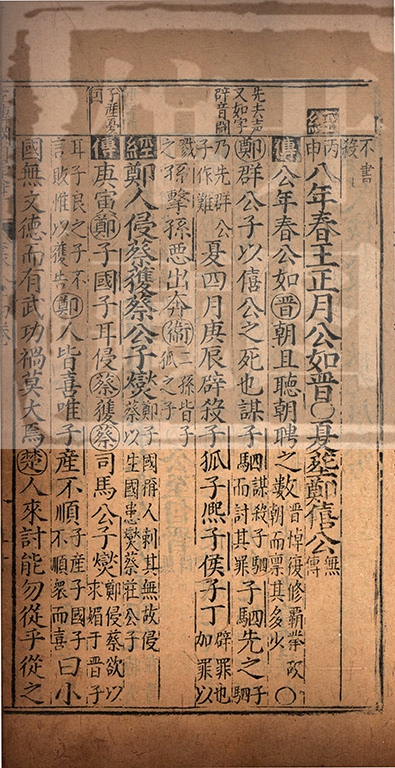 不書
殺
經丙申八年春王正月公如晉〇夏葬鄭僖公無傳
傳公年春公如晉朝且聽朝聘之數晉悼復修霸業故朝而稟其多少〇
先去聲
又如字
辟音闢
鄭群公子以僖公之死也謀子駟謀殺子駟而討其罪子駟先之子駟
乃先群公子作難夏四月庚辰辟殺子狐子熙子侯子丁辟罪也加罪以
戮之孫擊孫惡出奔衛二孫皆子狐之子
經鄭人侵蔡獲蔡公子燮鄭子國稱人刺其無故侵蔡以生國患燮蔡莊公子
子產憂國
傳庚寅鄭子國子耳侵蔡獲蔡司馬公子燮鄭侵蔡欲以求媚于晉子
耳子良之子不言敗惟以獲告鄭人皆喜唯子產不順子產子國子不順眾而喜曰小
國無文德而有武功禍莫大焉楚人來討能勿從乎從之